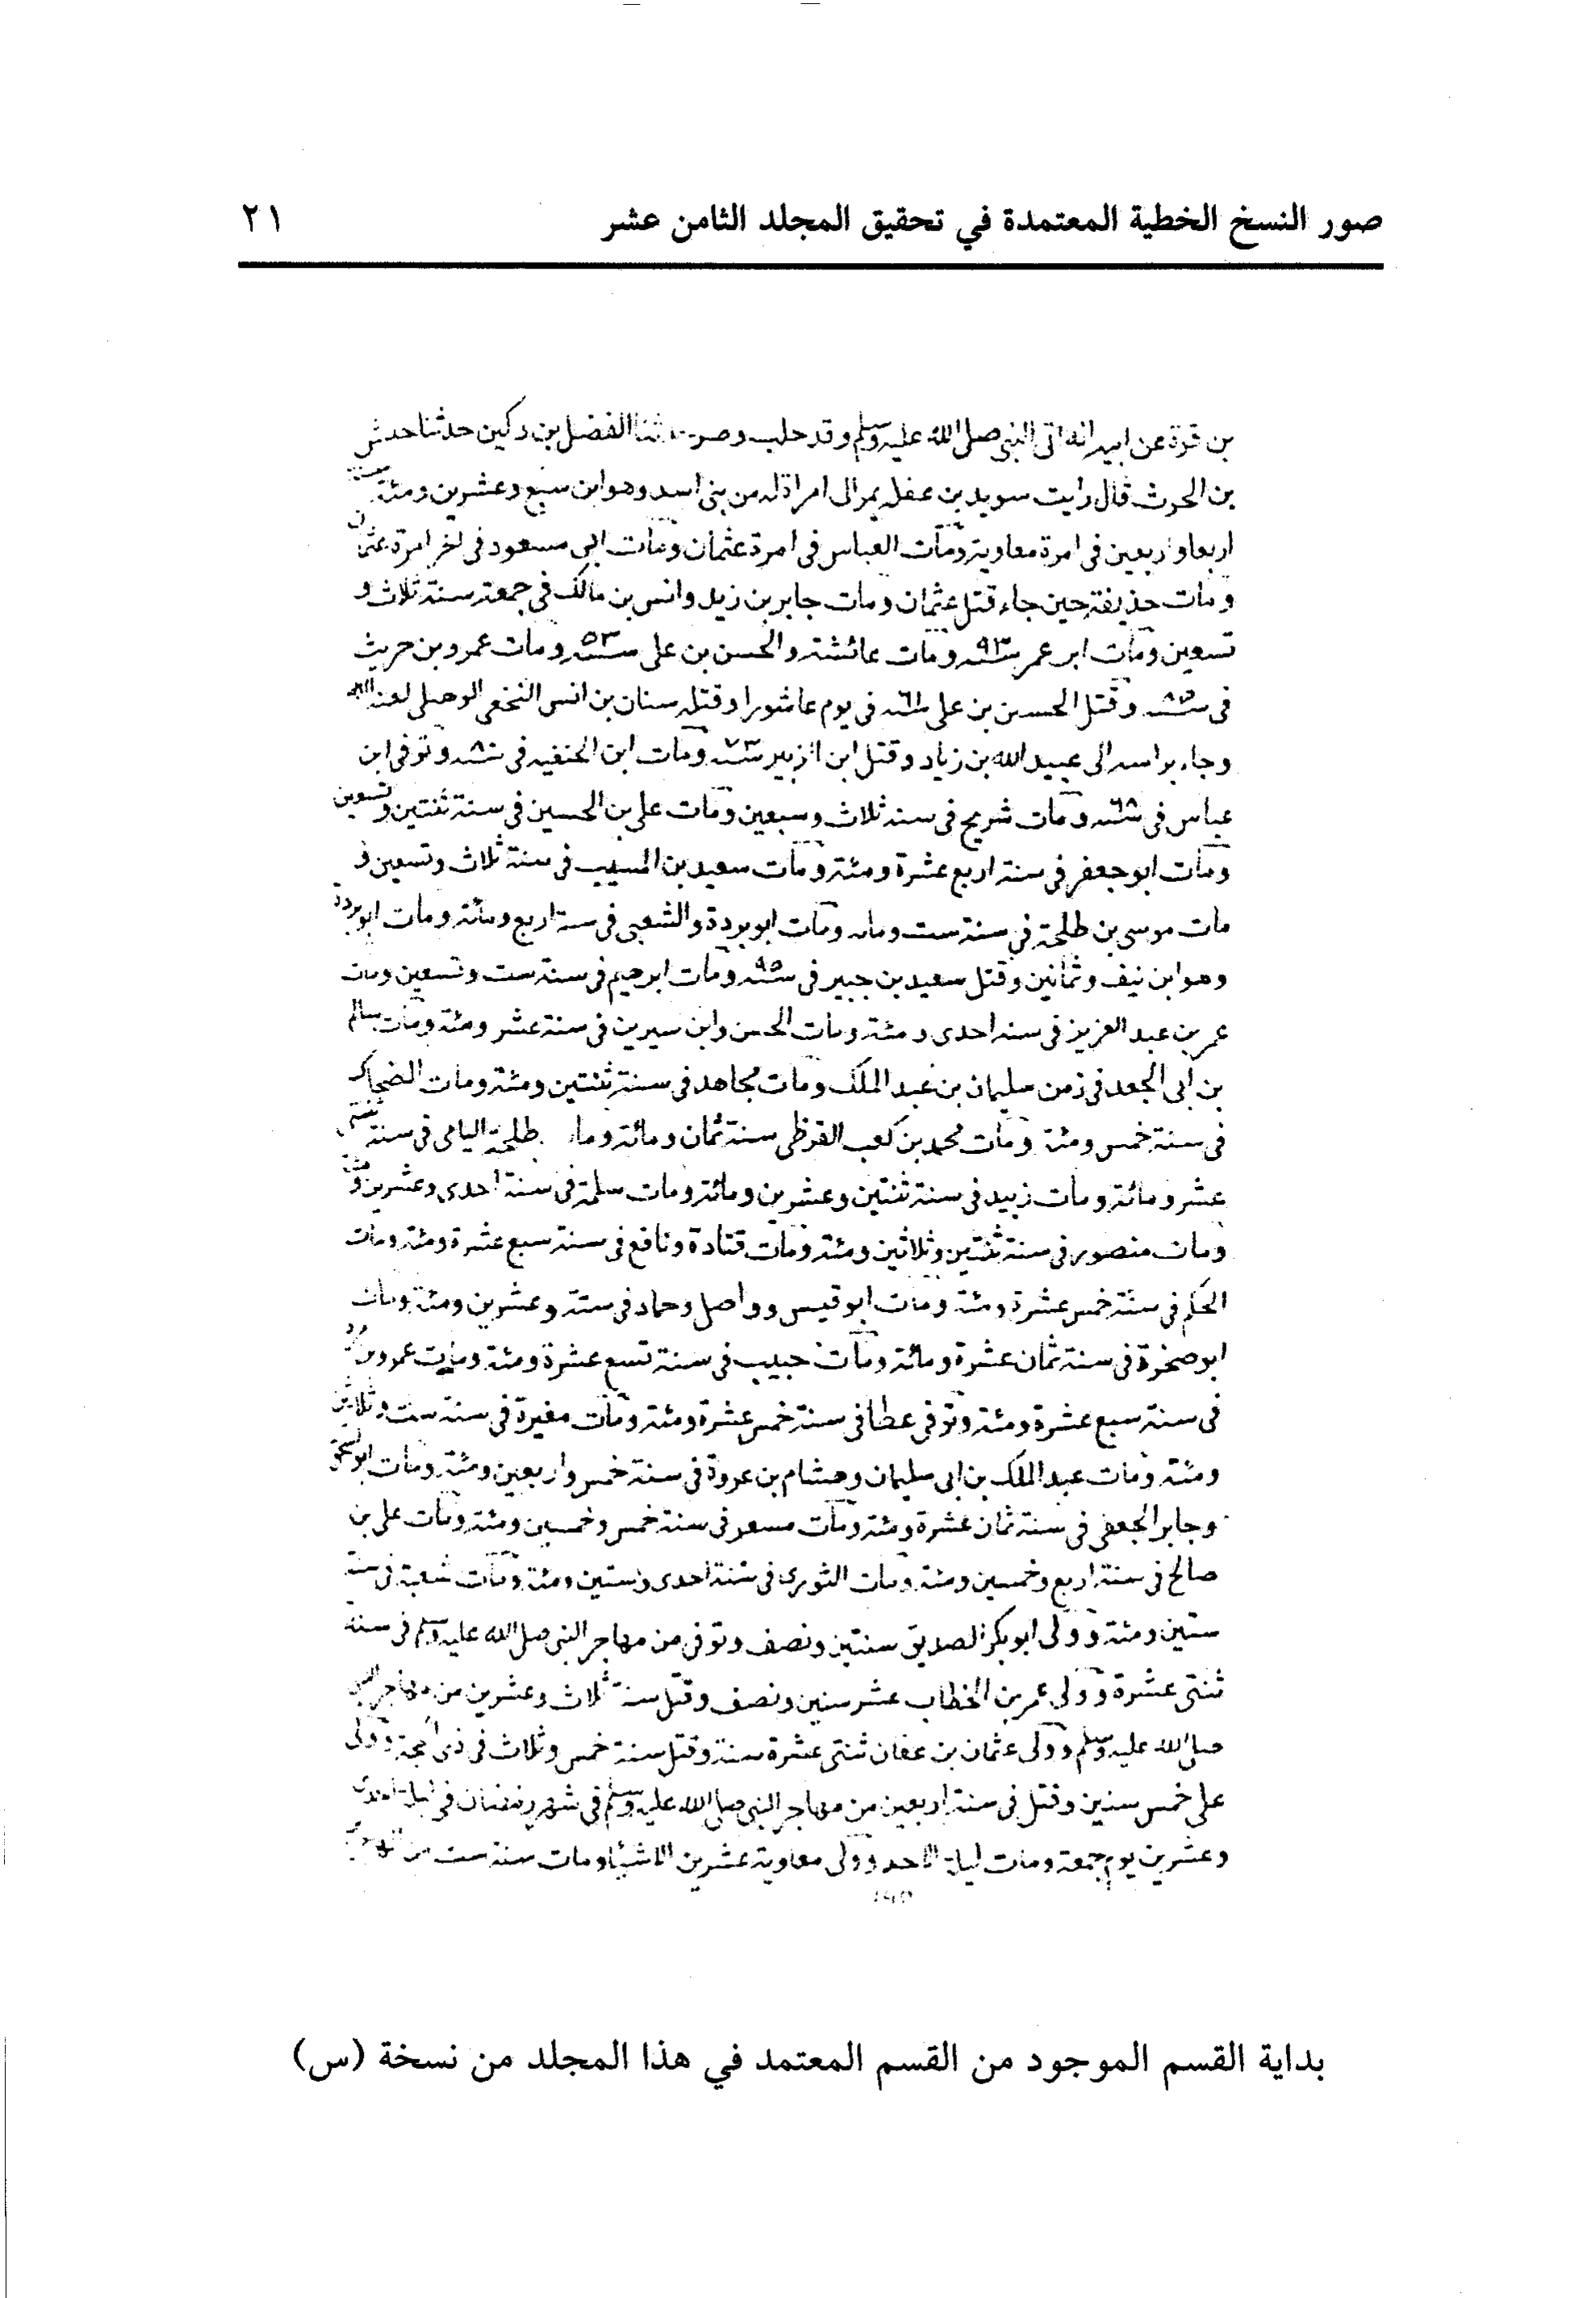 صور النسخ الخطية المعتمدة في تحقيق المجلد الثامن عشر
٢١
بن قرة عن ابيه انه اتى النبي صلى الله عليه وسلم وقد حلب وصر حدثنا الفضل بن دكين حدثنا حدش
بن الحرث قال رايت سويد بن غفلة يمر الى امراة له من بني اسد وهو ابن سبع وعشرين ومئة
اربعا واربعين في امرة معاوية ومات العباس في امرة عثمان ومات ابن مسعود في اخر امرة عثمان
ومات حذيفة حين جاء قتل عثمان ومات جابر بن زيد وانس بن مالك في جمعة سنة ثلاث و
تسعين ومات ابن عمر سنة ٩٣ ومات عائشة والحسن بن علي سنة ٥٣ ومات عمرو بن حريث
في سنة ٨٥ وقتل الحسين بن علي سنة ٦١ في يوم عاشورا وقتله سنان بن انس النخعي الوهبيلي لعنه الله
وجاء براسه الى عبيد الله بن زياد وقتل ابن الزبير سنة ٧٣ ومات ابن الحنفيه في سنة ٨٠ وتوفي ابن
عباس في سنة ٦٨ ومات شريح في سنة ثلاث وسبعين ومات علي بن الحسين في سنة ثنتين وتسعين
ومات ابو جعفر في سنة اربع عشرة ومئة ومات سعيد بن المسيب في سنة ثلاث وتسعين و
مات موسى بن طلحة في سنة ست ومات ابو بردة والشعبي في سنة اربع ومائة ومات ابو بردة
وهو ابن نيف وثمانين وقتل سعيد بن جبير في سنة ٩٥ ومات ابرهيم في سنة ست وتسعين ومات
عمر بن عبد العزيز في سنة احدى ومئة ومات الحسن وابن سيرين في سنة عشر ومئة ومات سالم
بن ابي الجعد في زمن سليمان بن عبد الملك ومات مجاهد في سنة ثنتين ومئة ومات الضحاك
في سنة خمس ومئة ومات محمد بن كعب القرظي سنة ثمان ومائة ومات طلحة اليامي في سنة ثنتي
عشر ومائة ومات زبيد في سنة ثنتين وعشرين ومائة ومات سلمة في سنة احدى وعشرين ومئة
ومات منصور في سنة ثنتين وثلاثين ومئة ومات قتادة ونافع في سنة سبع عشرة ومئة ومات
الحكم في سنة خمس عشرة ومئة ومات ابو قيس وواصل وحماد في سنة وعشرين ومئة ومات
ابو صخرة في سنة ثمان عشرة ومائة ومات حبيب في سنة تسع عشرة ومئة ومات عمرو بن مرة
في سنة سبع عشرة ومئة وتوفي عطا في سنة خمس عشرة ومئة ومات مغيرة في سنة ست وثلاثين
ومئة ومات عبد الملك بن ابي سليمان وهشام بن عروة في سنة خمس واربعين ومئة ومات ابو اسحق
وجابر الجعفي في سنة ثمان عشرة ومئة ومات مسعر في سنة خمس وخمسين ومئة ومات علي بن
صالح في سنة اربع وخمسين ومئة ومات الثوري في سنة احدى وستين ومئة ومات شعبة في سنة
ستين ومئة وولي ابو بكر الصديق سنتين ونصف وتوفي من مهاجر النبي صلى الله عليه وسلم في سنة
ثنتي عشرة وولي عمر بن الخطاب عشر سنين ونصف وقتل سنة ثلاث وعشرين من مهاجر النبي
صلى الله عليه وسلم وولي عثمان بن عفان ثنتي عشرة سنة وقتل سنة خمس وثلاث في ذي الحجة وولي
علي خمس سنين وقتل في سنة اربعين من مهاجر النبي صلى الله عليه وسلم في شهر رمضان في ليلة احدى
وعشرين يوم جمعة ومات ليلة الاحد وولي معاوية عشرين الا شيئا ومات سنة ست من
بداية القسم الموجود من القسم المعتمد في هذا المجلد من نسخة (س)